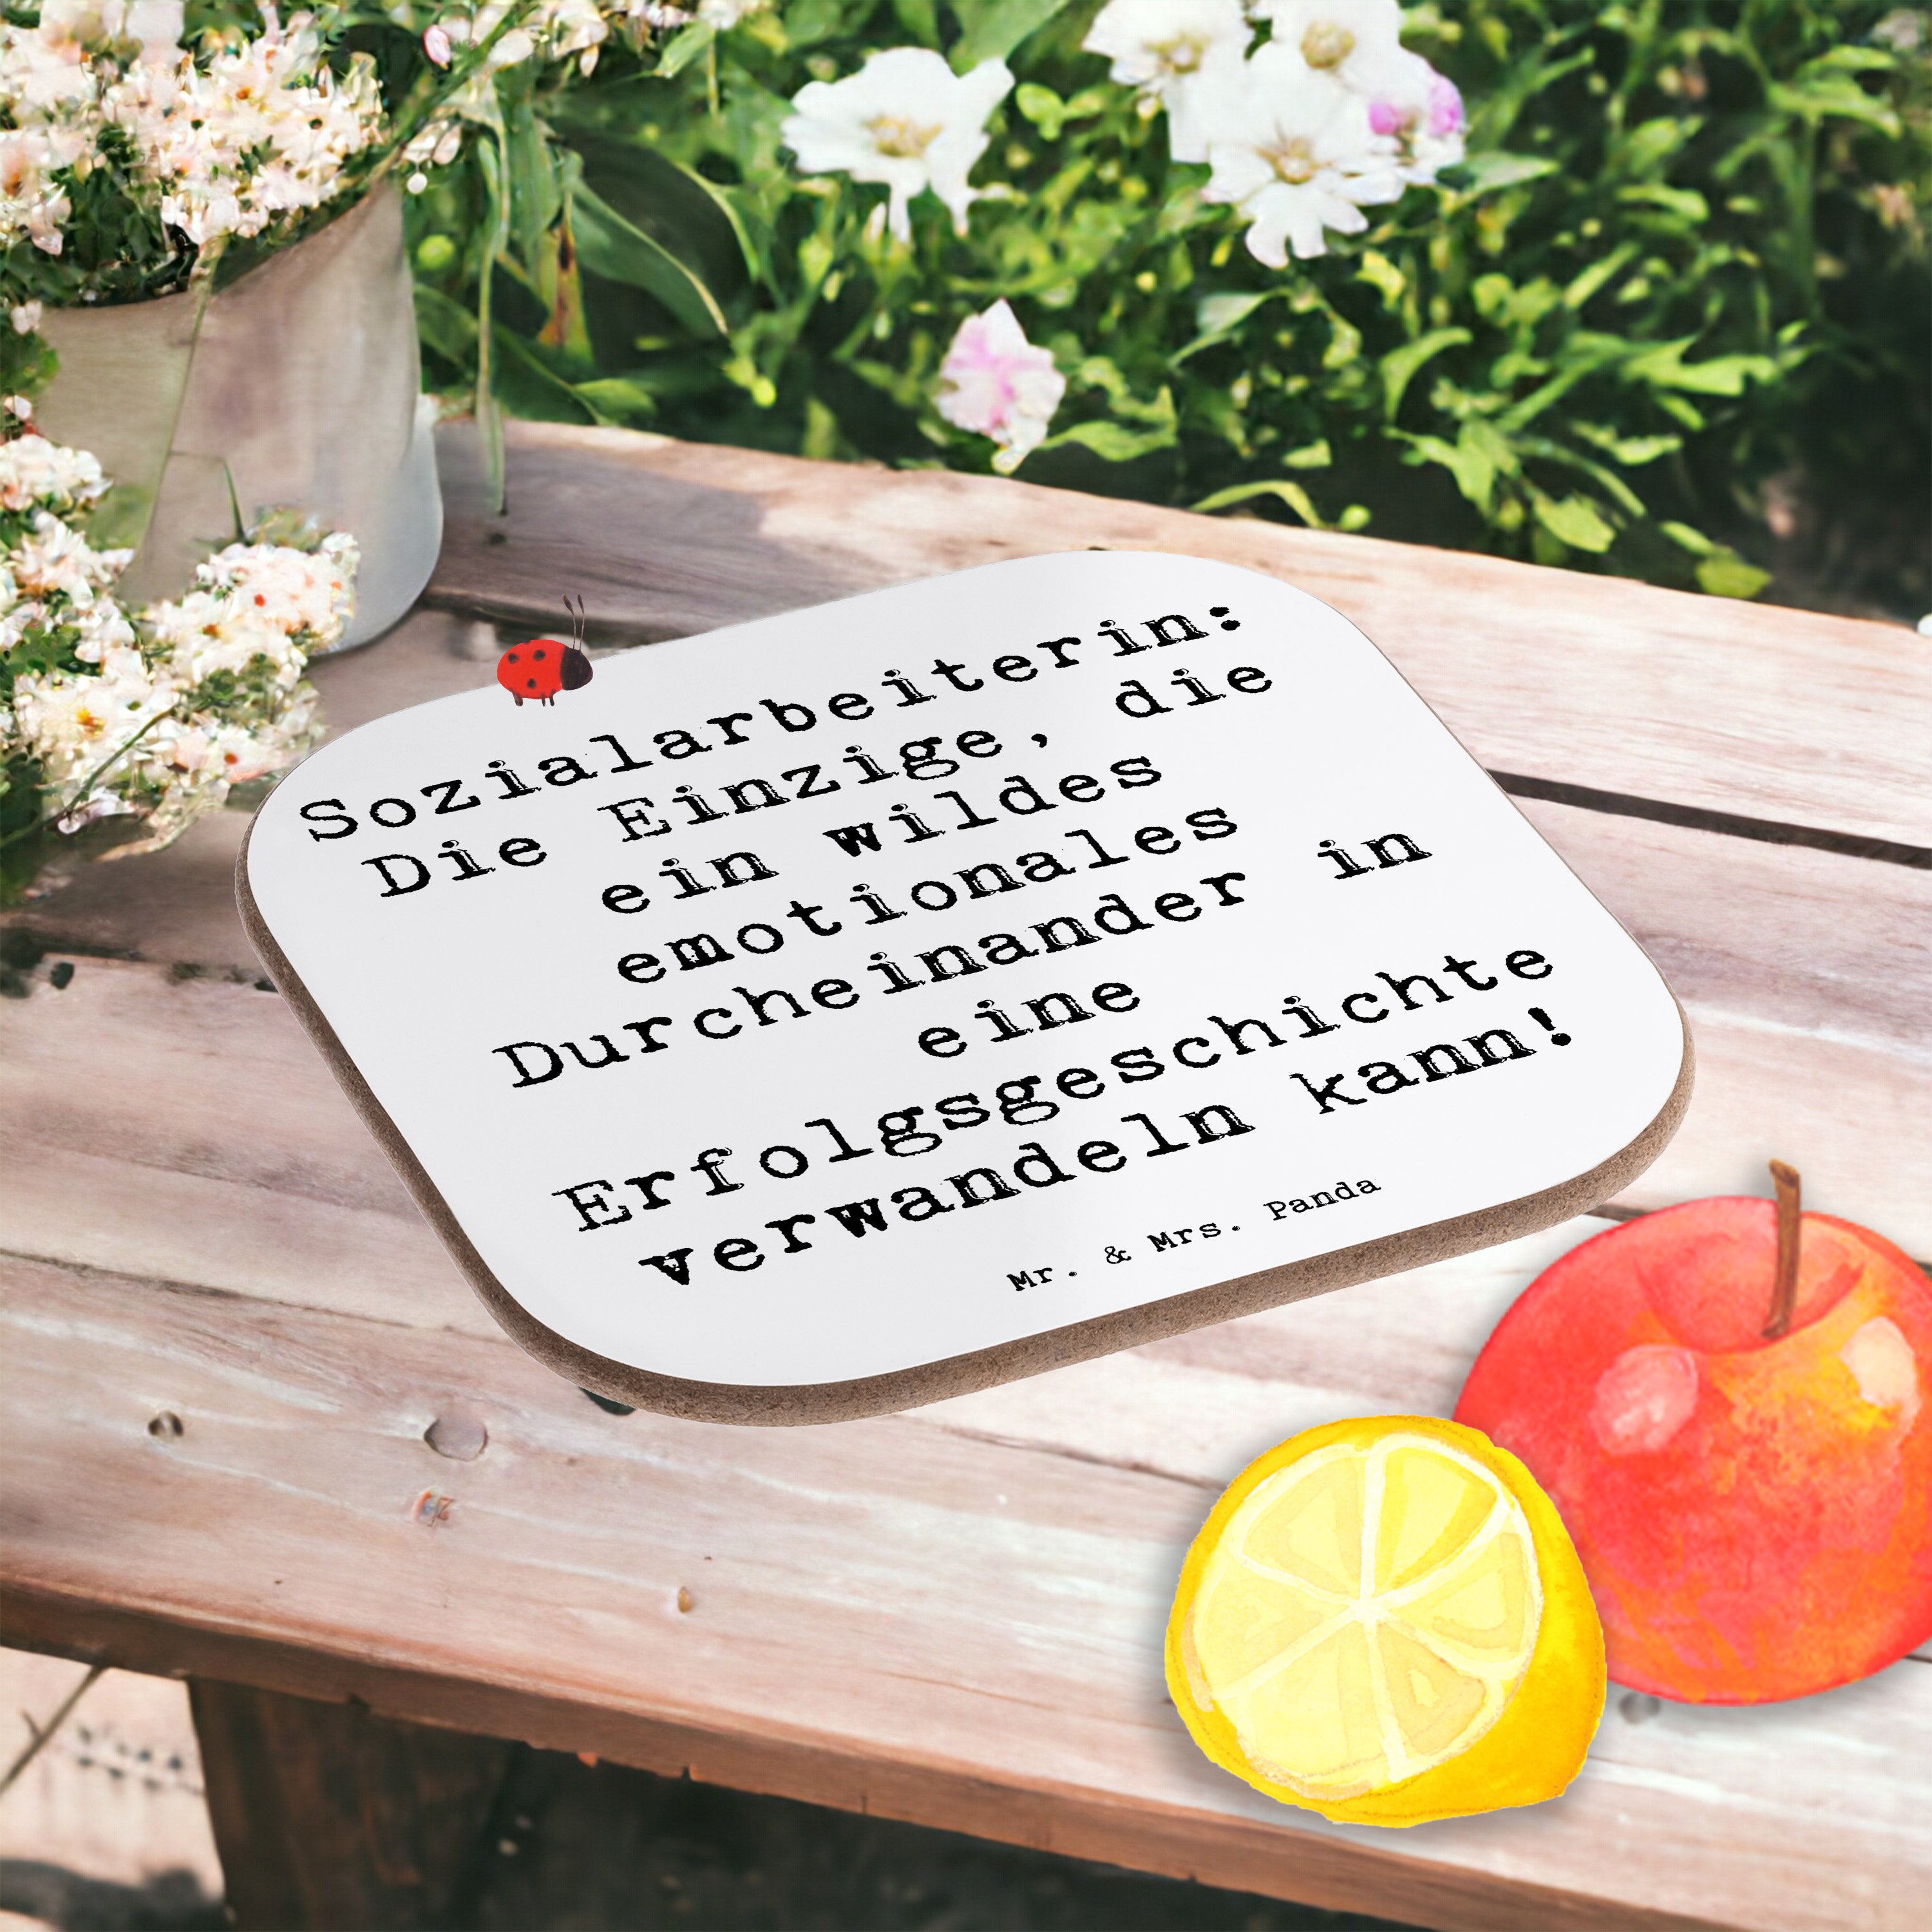 Sozialarbeiterin:
Die Einzige, die
ein wildes
emotionales
Durcheinander in
eine
Erfolgsgeschichte
verwandeln kann!
Mr. & Mrs. Panda